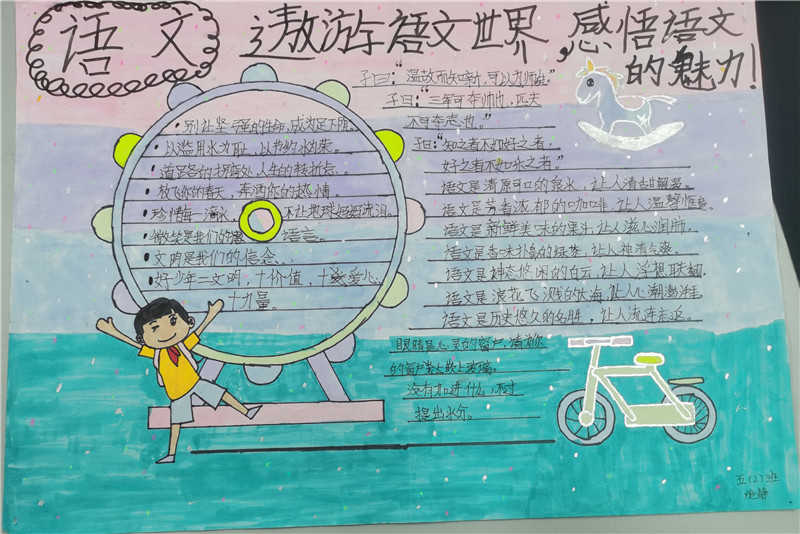 语文
遨游语文世界,感悟语文
的魅力!
子曰:“温故而知新,可以为师矣。”
子曰:“三军可夺帅也,匹夫
不可夺志也。”
子曰:“知之者不如好之者,
好之者不如乐之者”
语文是清凉可口的泉水,让人清甜解渴。
语文是芳香浓郁的咖啡,让人温馨惬意。
语文是新鲜美味的果汁,让人滋心润肺。
语文是香味扑鼻的绿茶,让人神清气爽。
语文是神态悠闲的白云,让人浮想联翩。
语文是浪花飞溅的大海,让人心潮澎湃。
语文是历史悠久的名胜,让人流连忘返。
眼睛是心灵的窗户,请为你
的窗户装上玻璃。
没有加进什么,不过
提出水尔。
·别让坚强的生命,成为足下
·以滥用水为耻,以节约水为荣。
·放飞你的春天,奔洒你的热情。
·珍惜每一滴水,不让地球妈妈流泪。
·微笑是我们的语言。
·文明是我们的信念、、
·好少年二文明,十价值,十爱心,
十力量。
五(2)班